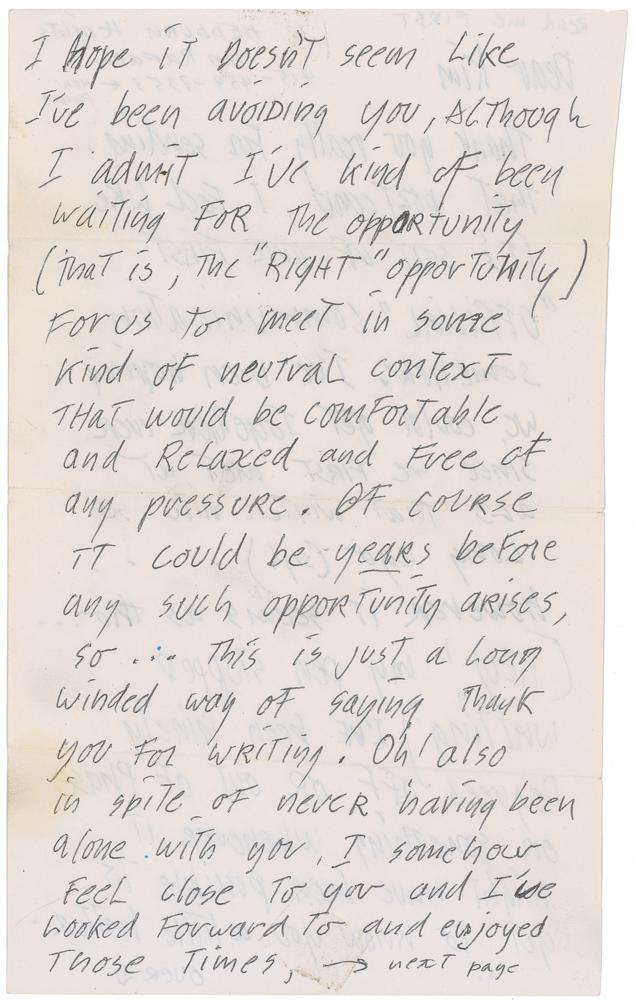 I Hope iT Doesn't seem Like
I've been avoiDing you, ALThough
I admiT I've kind of been
waiting FoR The oppoRTuniTy
(That is, The "RIGHT" opporTuniTy)
For us To meeT in some
kind of neutraL conTexT
THaT would be comForTabLe
and ReLaxed and Free of
any pressure. OF course
iT could be years beFore
any such opporTuniTy arises,
so ... This is just a Long
winded way of saying Thank
you For wriTing. Oh! also
in spite of neveR having been
alone with you, I somehow
FeeL close To you and I've
Looked Forward To and enjoyed
Those Times, → nexT page